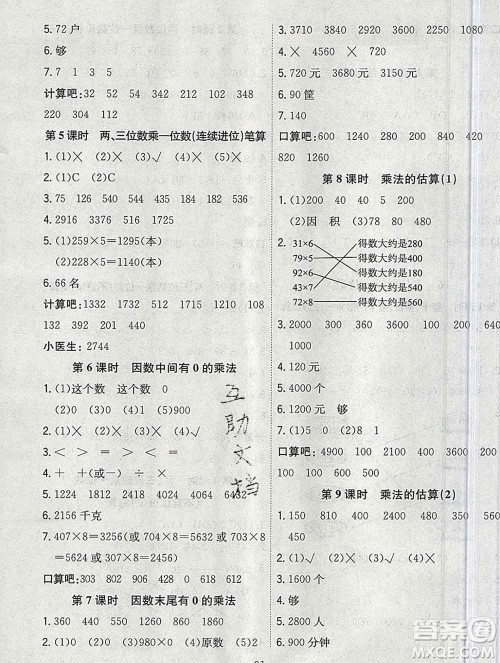 5. 72 户
6. 够
7. 7 1 3 5
计算吧: 32 52 54 340 248 148
220 304 112
第 5 课时 两、三位数乘一位数(连续进位)笔算
1. (1)× (2)× (3)√ (4)×
2. (1)C (2)C
3. 75 126 530 544 1782 765
4. 2916 1375 3536 768
5. (1)259×5=1295(本)
(2)228×5=1140(本)
6. 66 名
计算吧: 1332 1732 512 1750 1210 108
132 390 192 441
小医生: 2744
第 6 课时 因数中间有 0 的乘法
1. (1)这个数 这个数 0
(2)0 (3)1 (4)6 (5)900
2. (1)√ (2)× (3)× (4)×
3. < > = > =
4. + +(或一) × × ×
5. 1224 4827 2418 1818
6. 2156 千克
7. 407×8=3256(或 704×8=5632 或
706×4=2824)
口算吧: 303 802 930 428 618 612
第 7 课时 因数末尾有 0 的乘法
1. 360 440 550 1380 1320 1920
2. (1)0 (2)90 (3)40 (4)原数 (5)2
3. 3710 1440 1380 3880 1080
4. × × √ ×
5. 720 元 3680 元 3150 元
6. 90 筐
7. 140
口算吧: 90 180 480 420 990 420
820 1260
第 8 课时 乘法的估算(1)
1. (1)200 40 40 5 200
(2)因 积 (3)78 80 480
2. 31×6 得数大约是280
79×5 得数大约是400
92×6 得数大约是180
44×7 得数大约是540
72×8 得数大约是560
3. 2000 1000 350 320 3600 4000
300 630
4. 1200 元
5. 4000 个
6. 1210 元 够
7. (1)5 0 (2)8 1
口算吧: 150 400 2000 4000 3600
1400 600 100
第 9 课时 乘法的估算(2)
1. 150 810 400 2400 480 350 560
450
2. (1)√ (2)× (3)√
3. 8000 千克
4. 320 元
5. 2800 人
6. 900 分钟
互助文档
答案圈